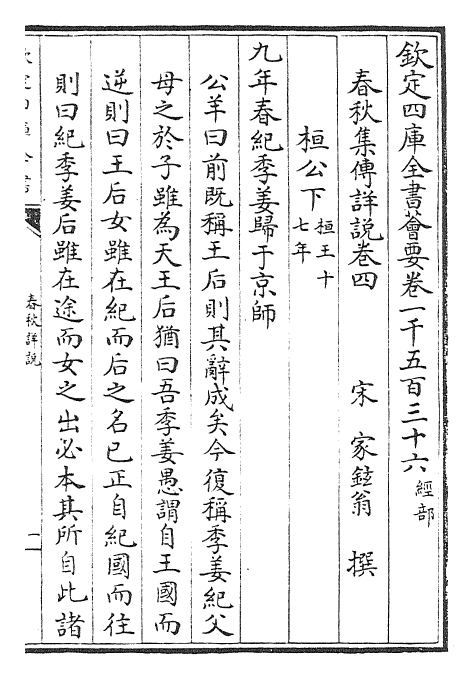 欽定四庫全書薈要卷一千五百三十六 經部
春秋集傳詳說卷四 宋 家鉉翁 撰
桓公下 桓王十七年
九年春紀季姜歸于京師
公羊曰前既稱王后則其辭成矣今復稱季姜紀父
母之於子雖為天王后猶曰吾季姜愚謂自王國而
逆則曰王后女雖在紀而后之名已正自紀國而往
則曰紀季姜后雖在途而女之出必本其所自此諸
春秋詳說
一